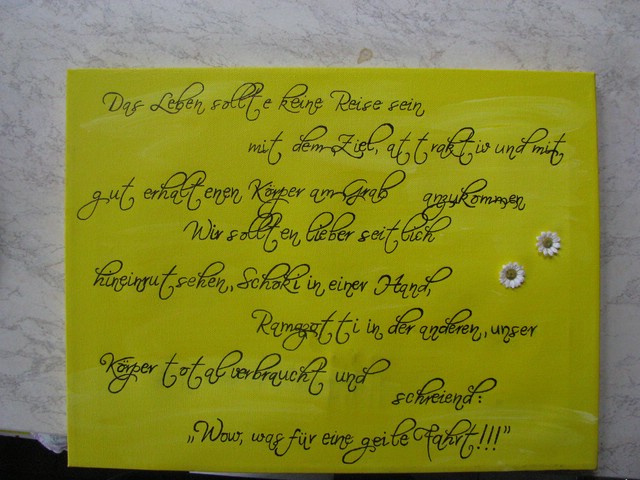 Das Leben sollte keine Reise sein,
mit dem Ziel, attraktiv und mit
gut erhaltenen Körper am Grab anzukommen
Wir sollten lieber seitlich
hineinrutsehen, Schoki in einer Hand,
Ramazotti in der anderen, unser
Körper total verbraucht und
schreiend:
„Wow, was für eine geile Fahrt!!!"